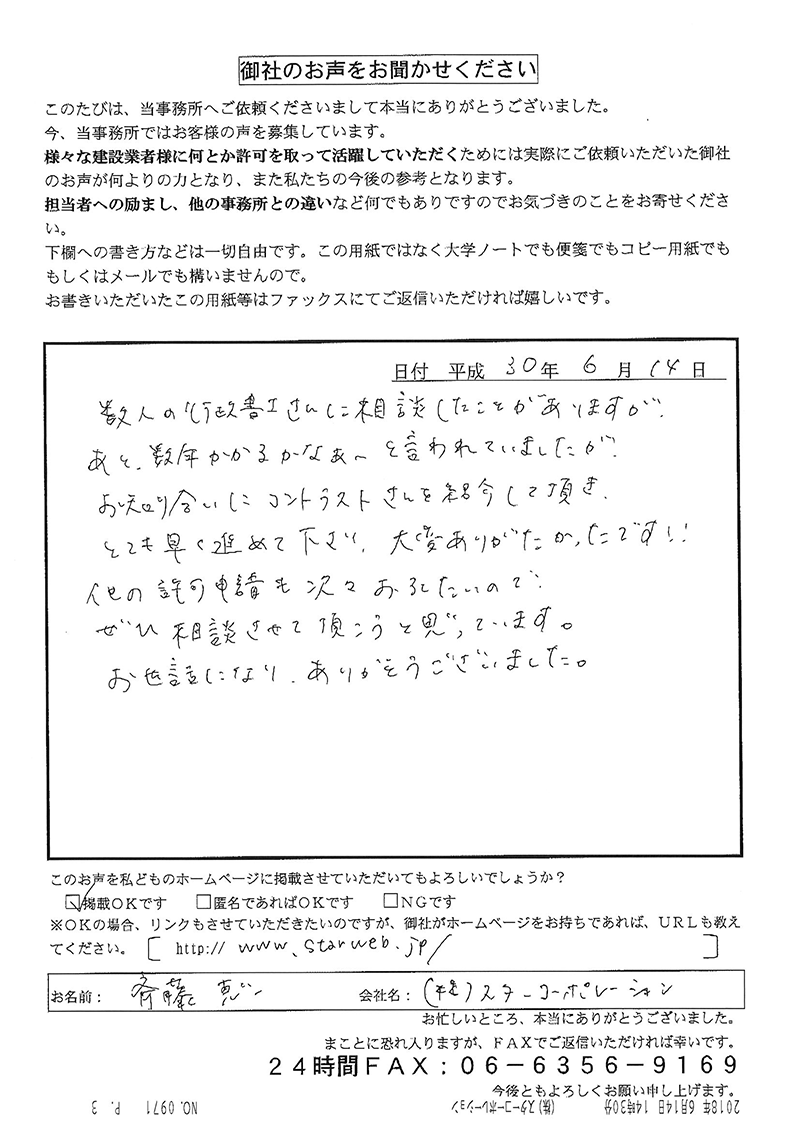 御社のお声をお聞かせください
このたびは、当事務所へご依頼くださいまして本当にありがとうございました。
今、当事務所ではお客様の声を募集しています。
様々な建設業者様に何とか許可を取って活躍していただくためには実際にご依頼いただいた御社
のお声が何よりの力となり、また私たちの今後の参考となります。
担当者への励まし、他の事務所との違いなど何でもありですのでお気づきのことをお寄せくださ
い。
下欄への書き方などは一切自由です。この用紙ではなく大学ノートでも便箋でもコピー用紙でも
もしくはメールでも構いませんので。
お書きいただいたこの用紙等はファックスにてご返信いただければ嬉しいです。
日付 平成 30年 6 月 14 日
数人の行政書士さんに相談したことがありますが、
あと、数年かかるかなぁ〜と言われていましたが、
お知り合いにコントラストさんを紹介して頂き、
とても早く進めて下さり、大変ありがたかったです!!
他の許可申請も次々おろしたいので、
ぜひ相談させて頂こうと思っています。
お世話になり、ありがとうございました。
このお声を私どものホームページに掲載させていただいてもよろしいでしょうか？
☑掲載OKです □匿名であればOKです □NGです
※OKの場合、リンクもさせていただきたいのですが、御社がホームページをお持ちであれば、URLも教え
てください。[ http://www.starweb.jp/ ]
お名前： 斎藤 恵一 会社名：(株)スターコーポレーション
お忙しいところ、本当にありがとうございました。
まことに恐れ入りますが、FAXでご返信いただければ幸いです。
24時間FAX：06－6356－9169
今後ともよろしくお願い申し上げます。
2018年 6月14日 14時30分 (株)スターコーポレーション NO.0971 P. 3